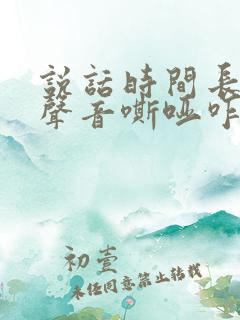 説話時間長
聲音嘶啞咋
初壹
未任同意禁止转载